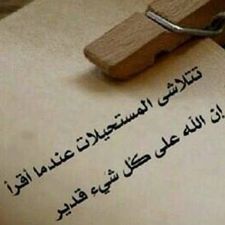 تتلاشى المستحيلات عندما أقرأ
إن الله على كل شيء قدير